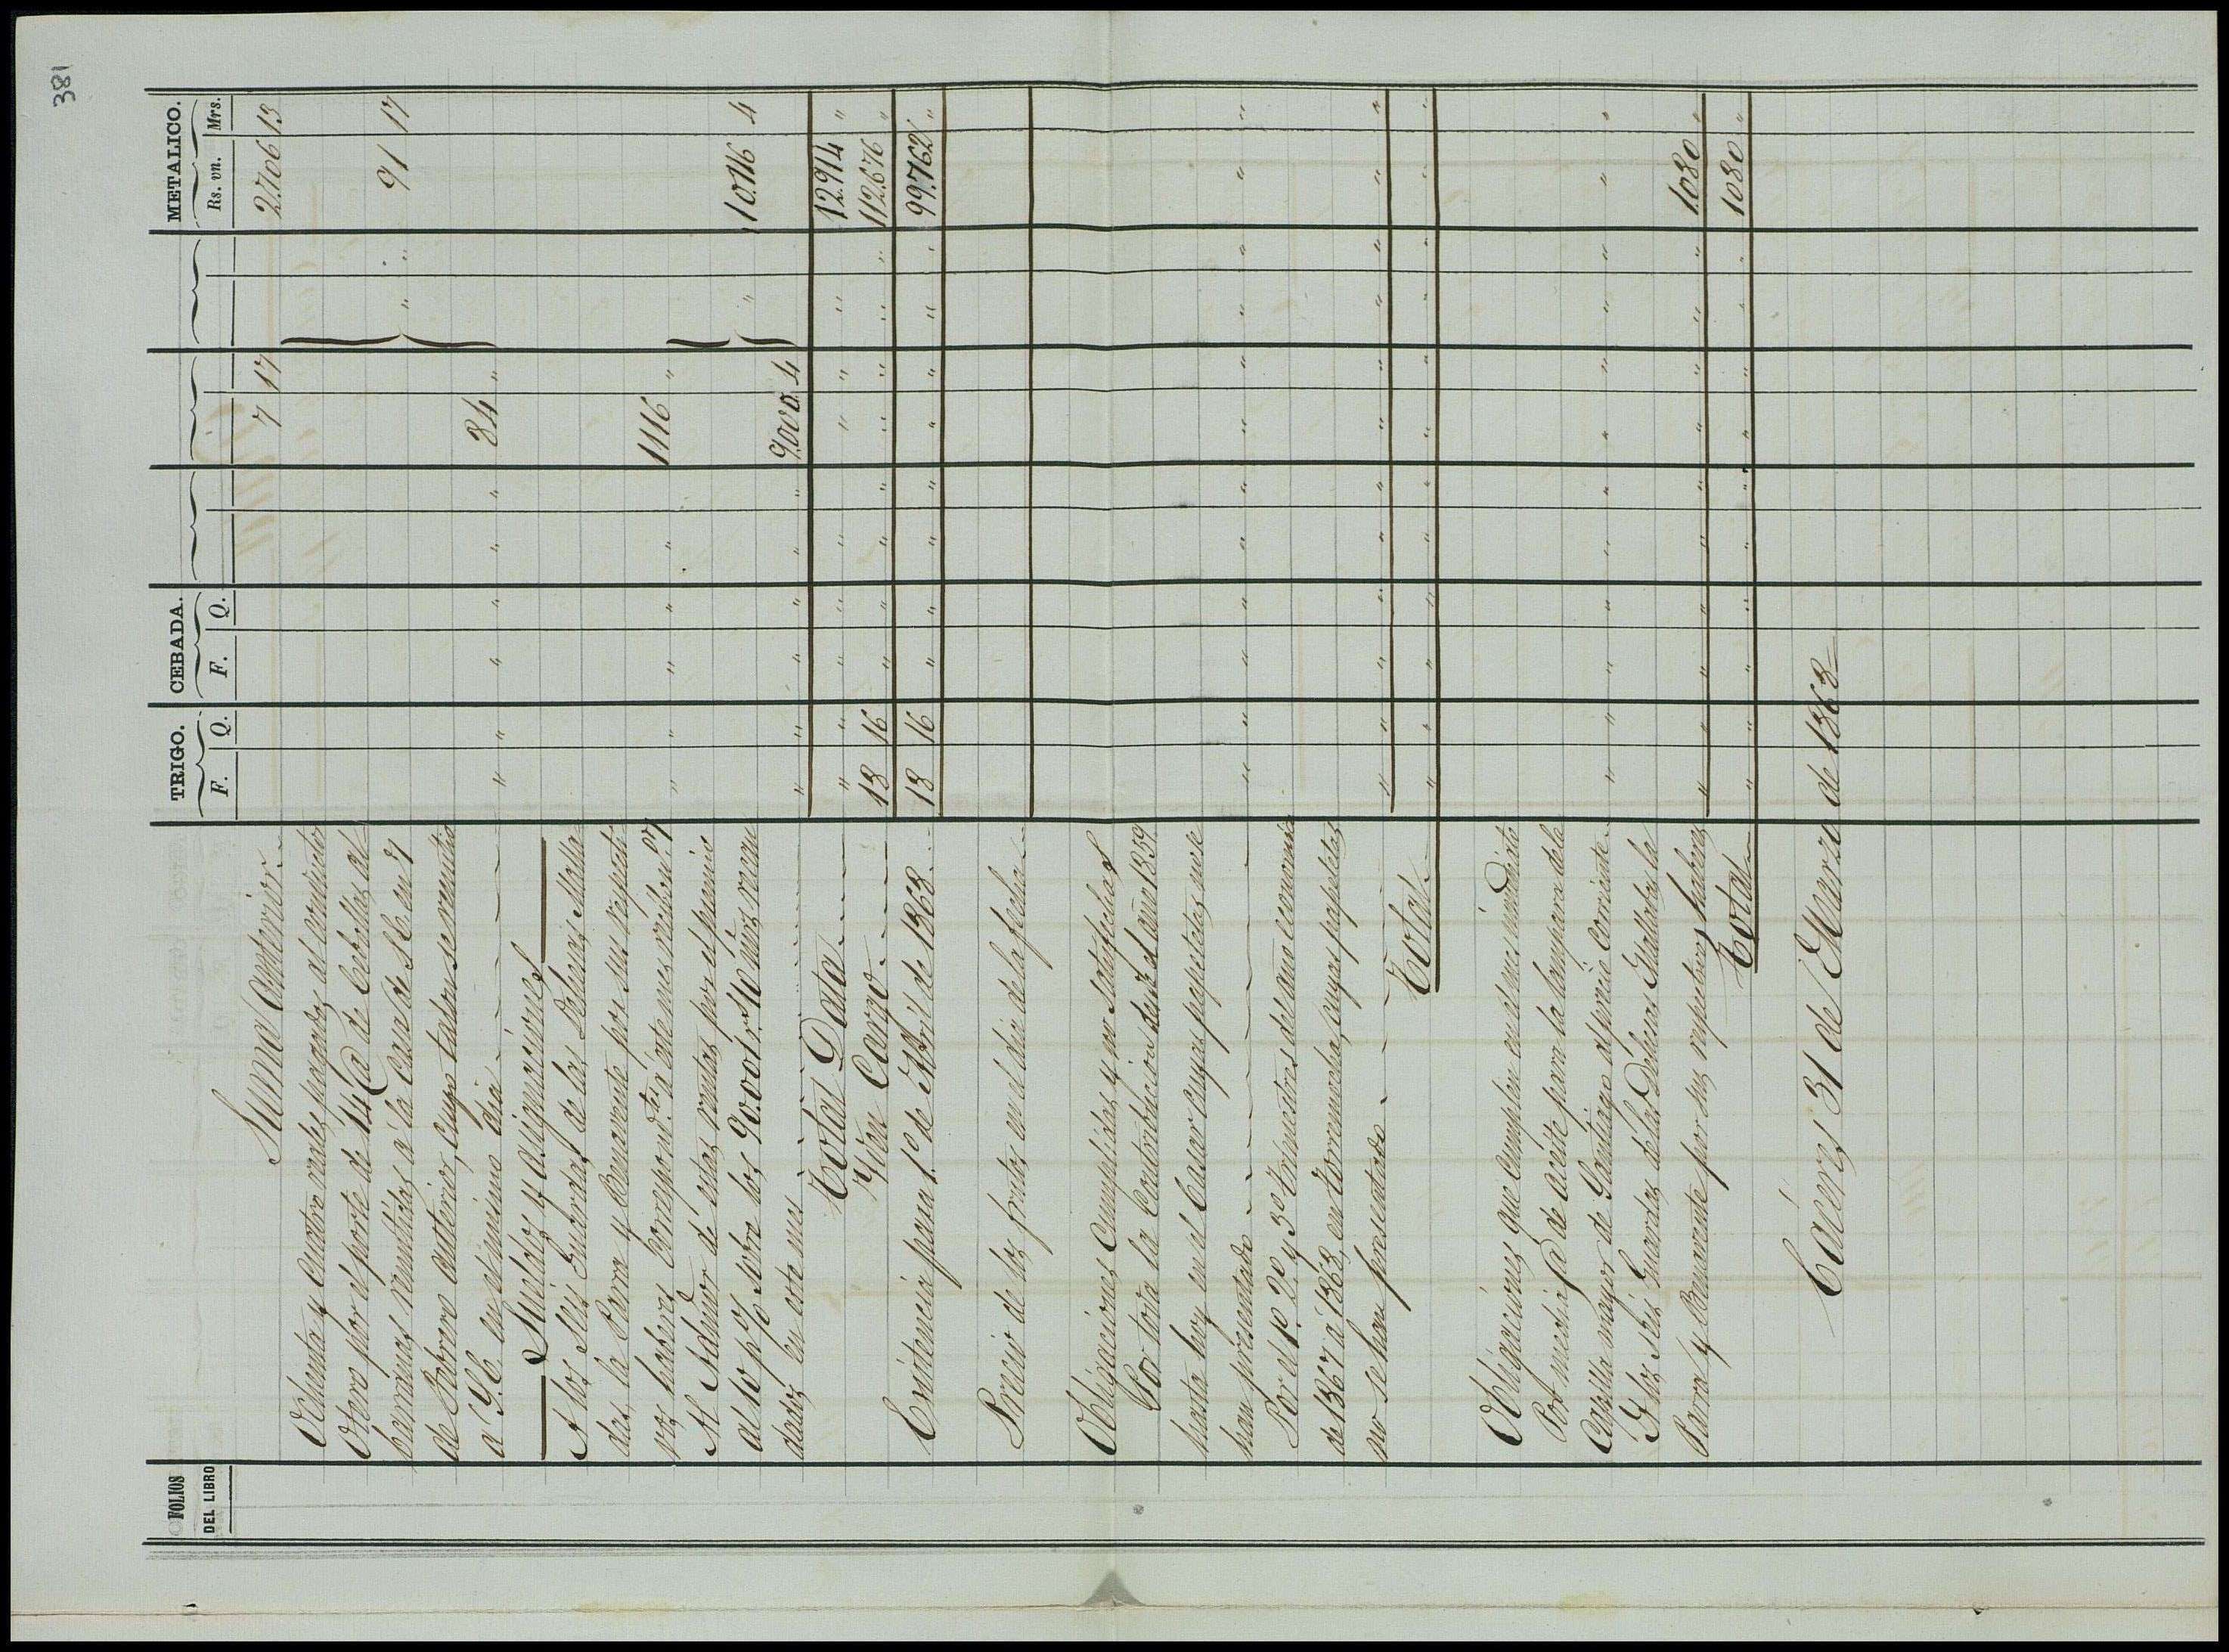 381
FOLIOS DEL LIBRO TRIGO. CEBADA. METALICO.
F. Q. F. Q. Rs. vn. Mrs.
Suma anterior 7 17 2.706 13
Ochenta y cuatro reales pagados al conductor
Otero por el porte de 14 @ de Cebollas al
remitidas a la Casa de S.E. en 27
de Febrero anterior, cuyo talon se remitió
a V.E. en el mismo dia " " " " " " 84 " " " 91 17
Sueldos y Asignaciones
A los Seis Guardas de las Dehesas Mata-
das la Parra y Benavente por sus respecti-
vos haberes correspond.tes a este mes reciben 27 " " " " " " 1116 "
Al Admor de estas rentas por el premio
al 10 p% sobre los 90.001 rs 10 mrs recau-
dados en este mes " " " " " " 9.000 4 " 10.116 4
Total Data " " " " " " " " " " 12.914 "
Idem Cargo 13 16 " " " " " " " " 112.676 "
Existencia para 1º de Abril de 1868 13 16 " " " " " " " " 99.762 "
Precio de los frutos en el dia de la fecha
Obligaciones Cumplidas y no Satisfechas
Por toda la Contribucion desde el año 1859
hasta hoy en el Casar cuyas papeletas no se
han presentado " " " " " " " " " " " "
Por el 1º 2º y 3º trimestres del año economico
de 1867 á 1868, en Torremocha, cuyas papeletas
no se han presentado " " " " " " " " " " " "
Total " " " " " " " " " " " "
Obligaciones que Cumplen en el mes inmediato
Por media @ de aceite para la lampara de la
Capilla mayor de Santiago al precio corriente " " " " " " " " " " " "
A los Seis Guardas de las Dehesas Matallana la
Parra y Benavente por sus respectivos haberes " " " " " " " " " " 1.080 "
Total " " " " " " " " " " 1080 "
Cáceres 31 de Marzo de 1868